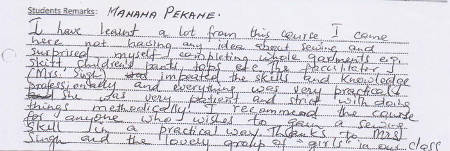 Students Remarks: MANAHA PEKANE.
I have learnt a lot from this course I came
here not having any idea about sewing and
surprised myself completing whole garments e.g.
skirt, childrens pants, tops etc. The facilitater
(Mrs. Singh) has imparted the skills and knowledge
professionally and everything was very practical
she was very patient and strict with doing
things methodically. I recommend the course
for anyone who wishes to gain a sewing
skill in a practical way. Thanks to Mrs
Singh and the lovely group of "girls" in our class